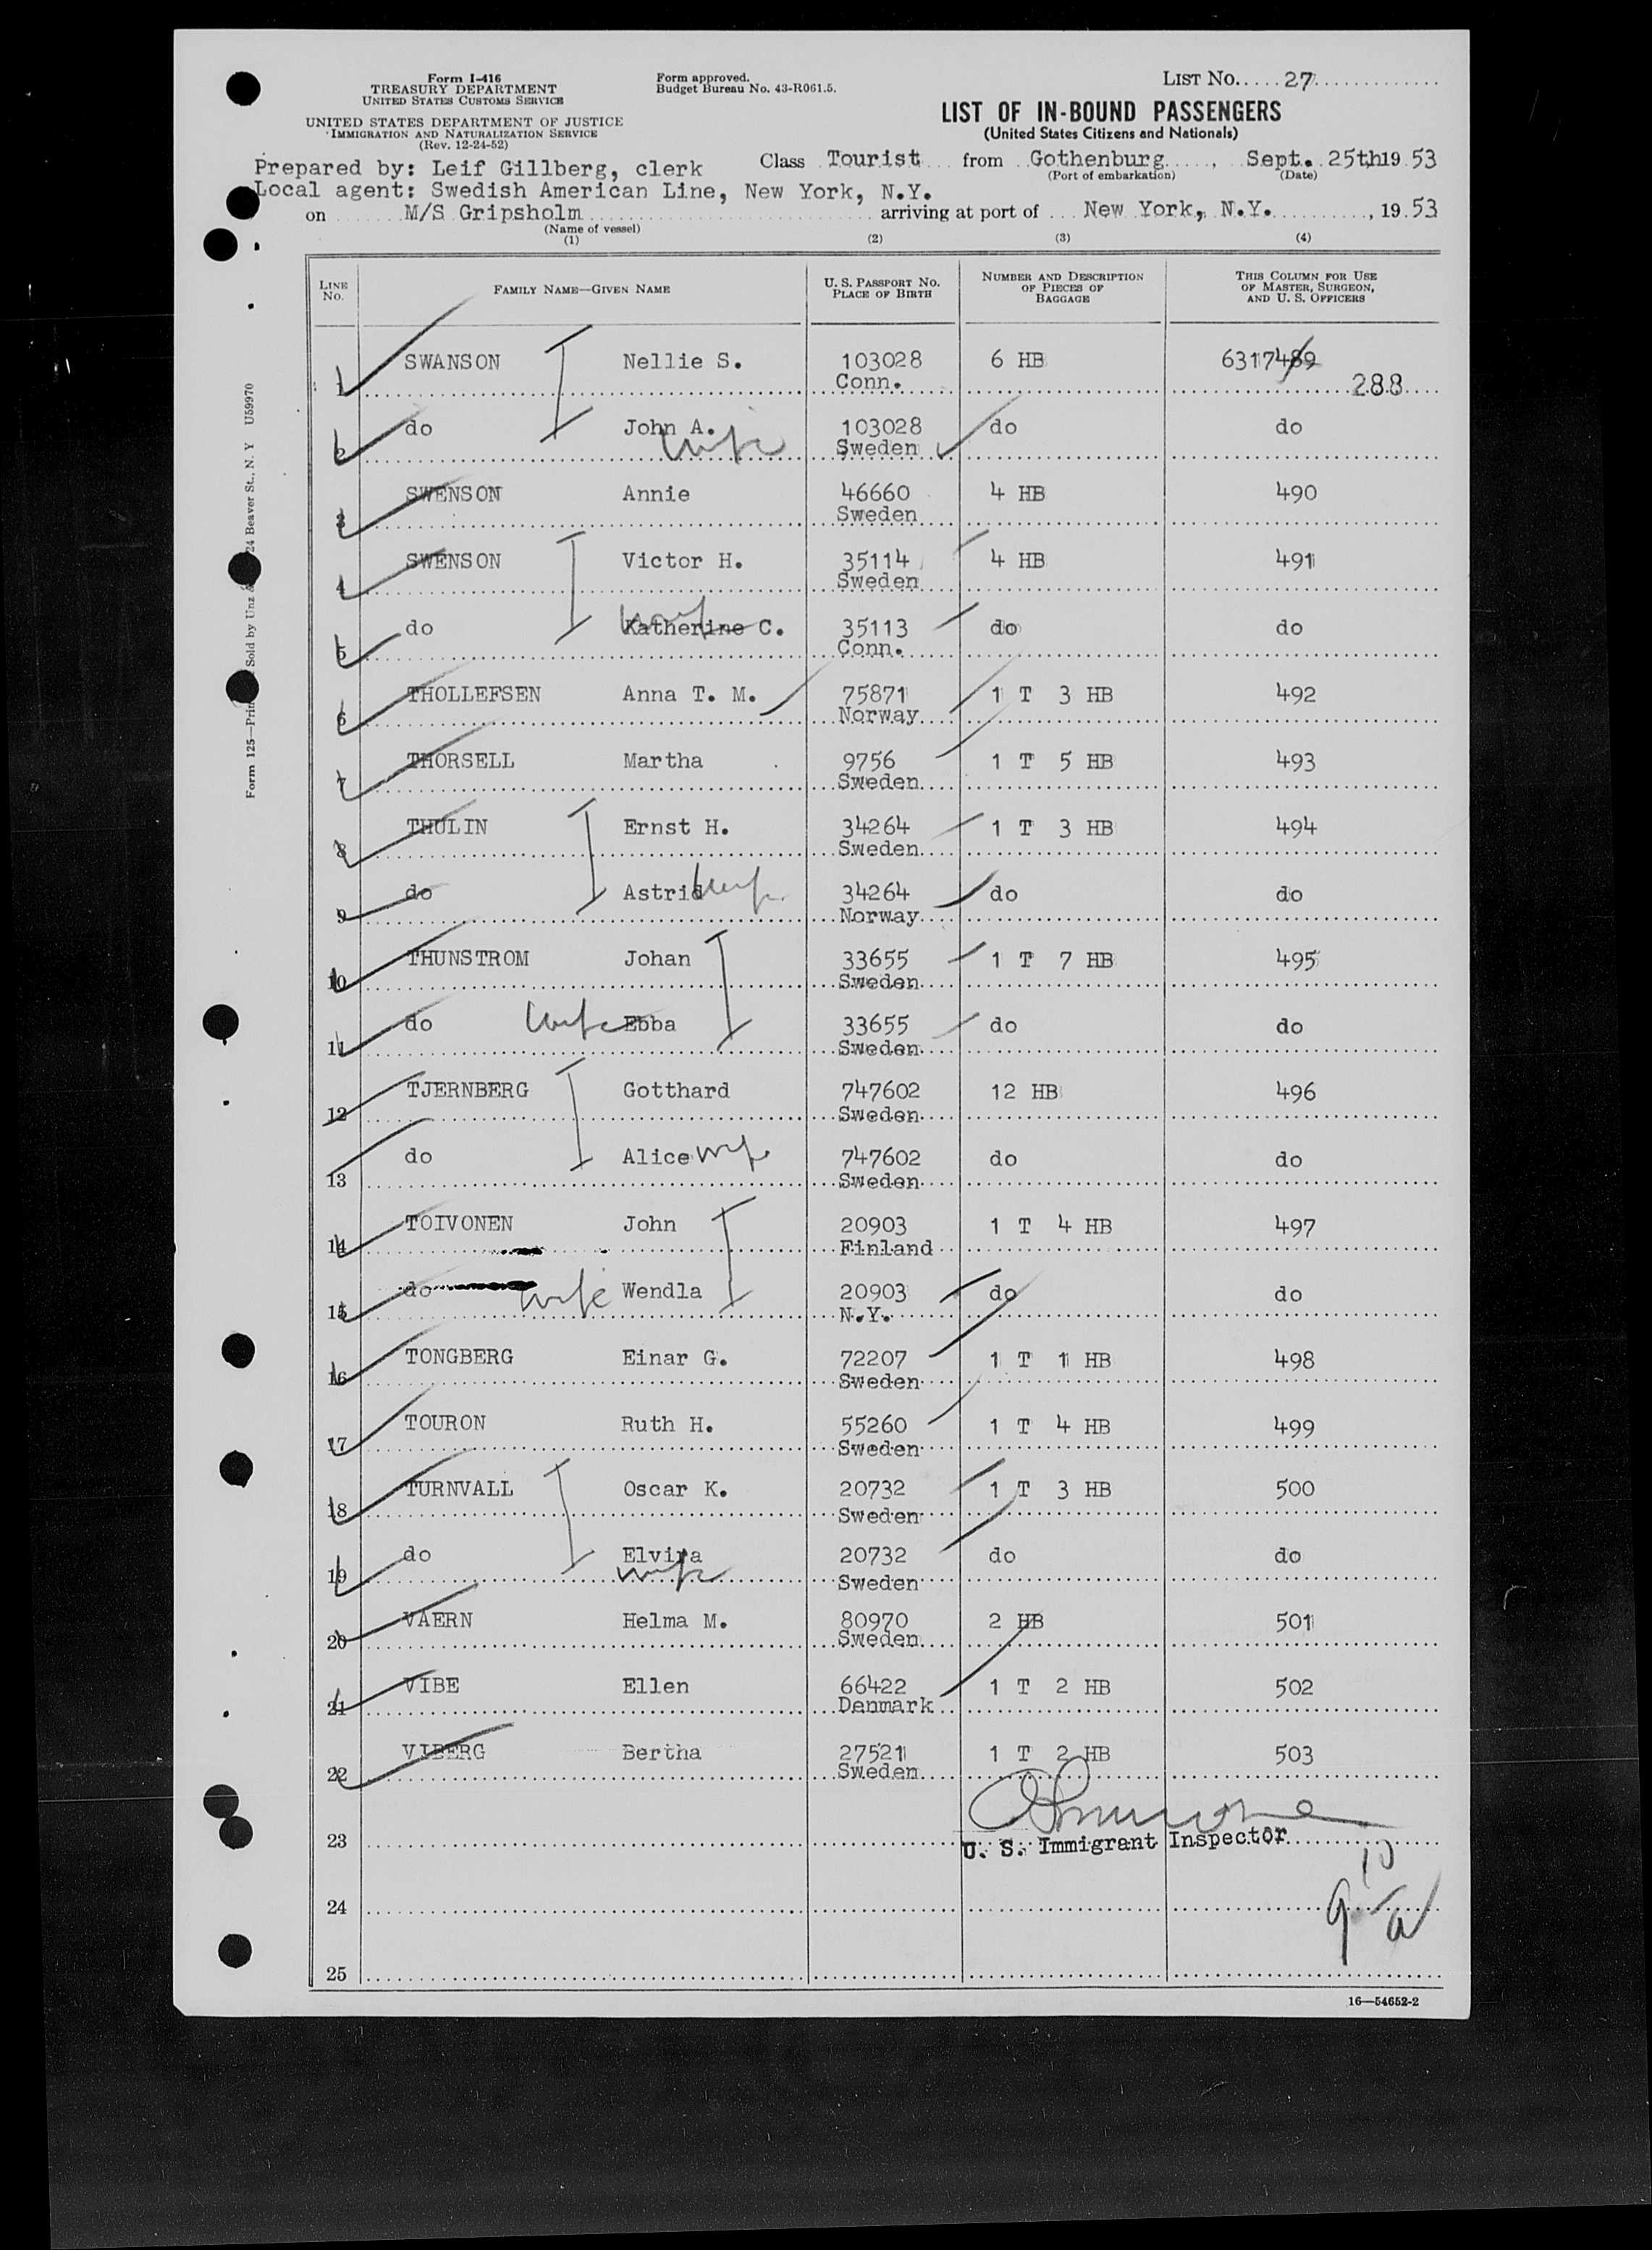 Form I-416
TREASURY DEPARTMENT
UNITED STATES CUSTOMS SERVICE
UNITED STATES DEPARTMENT OF JUSTICE
IMMIGRATION AND NATURALIZATION SERVICE
(Rev. 12-24-52)
Form approved.
Budget Bureau No. 43-R061.5.
LIST NO. 27
LIST OF IN-BOUND PASSENGERS
(United States Citizens and Nationals)
Prepared by: Leif Gillberg, clerk
Class Tourist from Gothenburg, Sept. 25th 19 53
(Port of embarkation) (Date)
Local agent: Swedish American Line, New York, N.Y.
on M/S Gripsholm arriving at port of New York, N.Y., 19 53
(Name of vessel)
(1) (2) (3) (4)
LINE NO.
FAMILY NAME—GIVEN NAME
U. S. PASSPORT NO.
PLACE OF BIRTH
NUMBER AND DESCRIPTION
OF PIECES OF
BAGGAGE
THIS COLUMN FOR USE
OF MASTER, SURGEON,
AND U. S. OFFICERS
1 SWANSON Nellie S. 103028 6 HB 6317489
Conn. 288
2 do John A. 103028 do do
wife Sweden
3 SWENSON Annie 46660 4 HB 490
Sweden
4 SWENSON Victor H. 35114 4 HB 491
Sweden
5 do Katherine C. wife 35113 do do
Conn.
6 THOLLEFSEN Anna T. M. 75871 1 T 3 HB 492
Norway
7 THORSELL Martha 9756 1 T 5 HB 493
Sweden
8 THULIN Ernst H. 34264 1 T 3 HB 494
Sweden
9 do Astrid wife 34264 do do
Norway
10 THUNSTROM Johan 33655 1 T 7 HB 495
Sweden
11 do wife Ebba 33655 do do
Sweden
12 TJERNBERG Gotthard 747602 12 HB 496
Sweden
13 do Alice wife 747602 do do
Sweden
14 TOIVONEN John 20903 1 T 4 HB 497
Finland
15 do wife Wendla 20903 do do
N.Y.
16 TONGBERG Einar G. 72207 1 T 1 HB 498
Sweden
17 TOURON Ruth H. 55260 1 T 4 HB 499
Sweden
18 TURNVALL Oscar K. 20732 1 T 3 HB 500
Sweden
19 do Elvira 20732 do do
wife Sweden
20 VAERN Helma M. 80970 2 HB 501
Sweden
21 VIBE Ellen 66422 1 T 2 HB 502
Denmark
22 VIBERG Bertha 27521 1 T 2 HB 503
Sweden
23 U. S. Immigrant Inspector
10
24
25
16—54652-2
Sold by Unz
24 Beaver St., N. Y U59970
Form 125